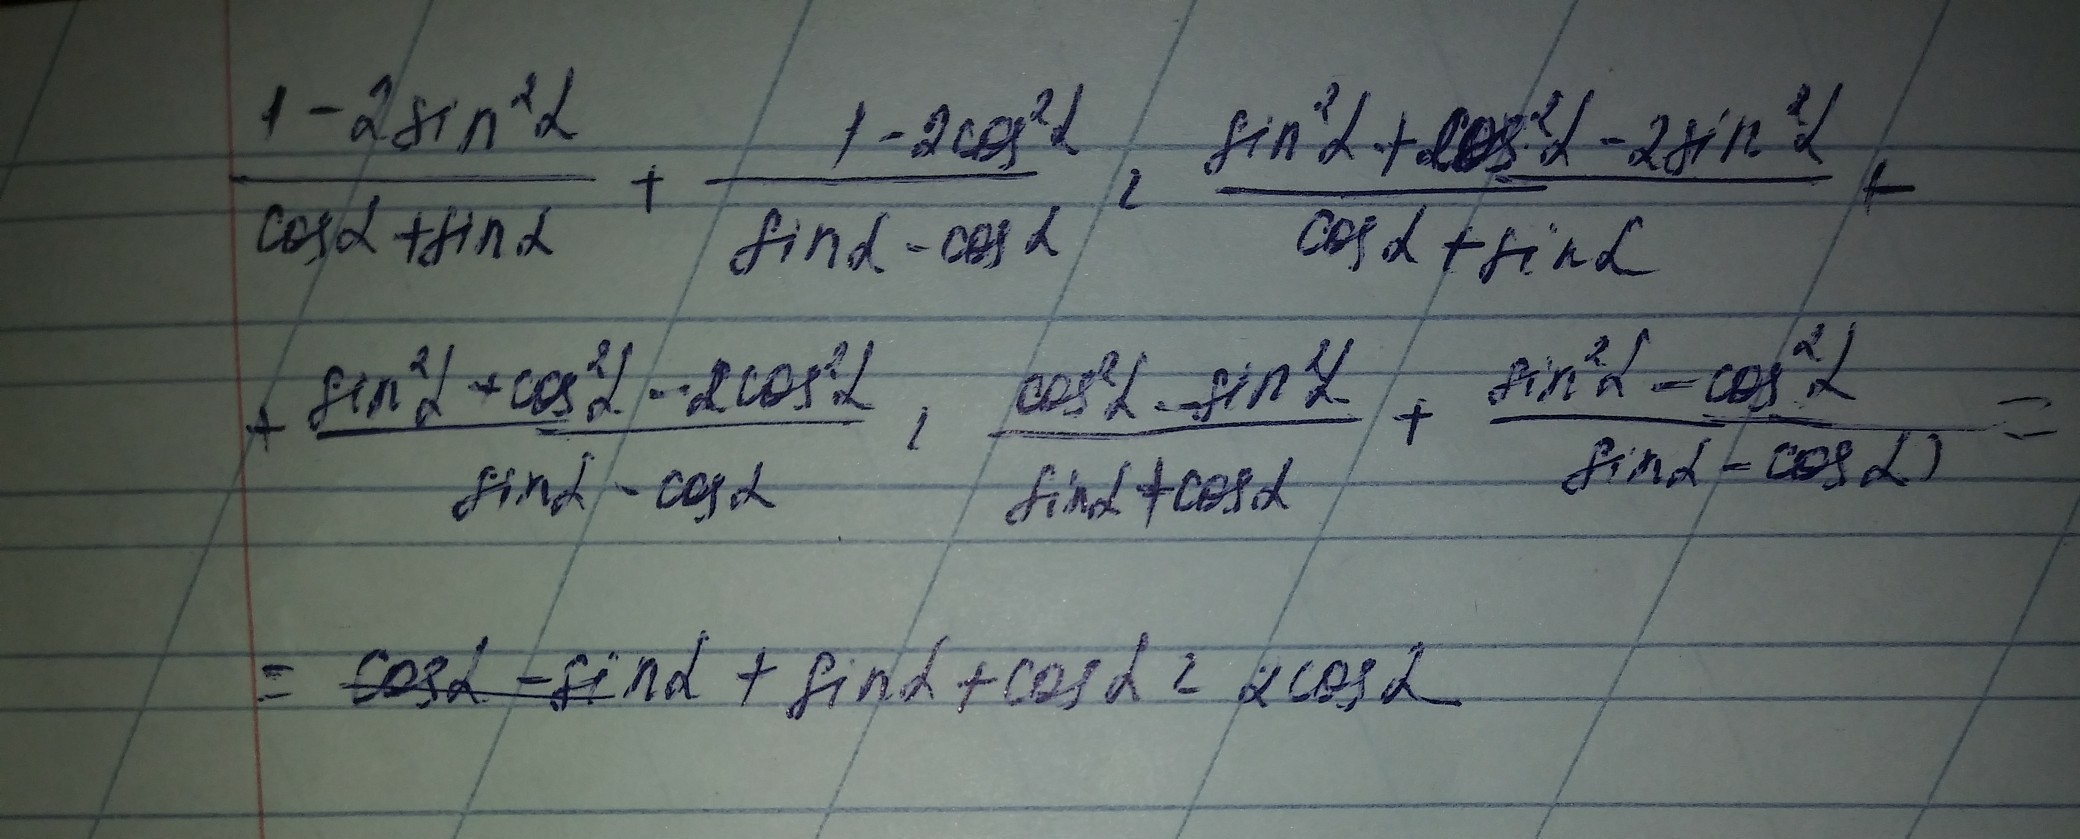 (1 - 2sin²α)/(cosα + sinα) + (1 - 2cos²α)/(sinα - cosα) = (sin²α + cos²α - 2sin²α)/(cosα + sinα) +
+ (sin²α + cos²α - 2cos²α)/(sinα - cosα) = (cos²α - sin²α)/(sinα + cosα) + (sin²α - cos²α)/(sinα - cosα) =
= cosα - sinα + sinα + cosα = 2cosα